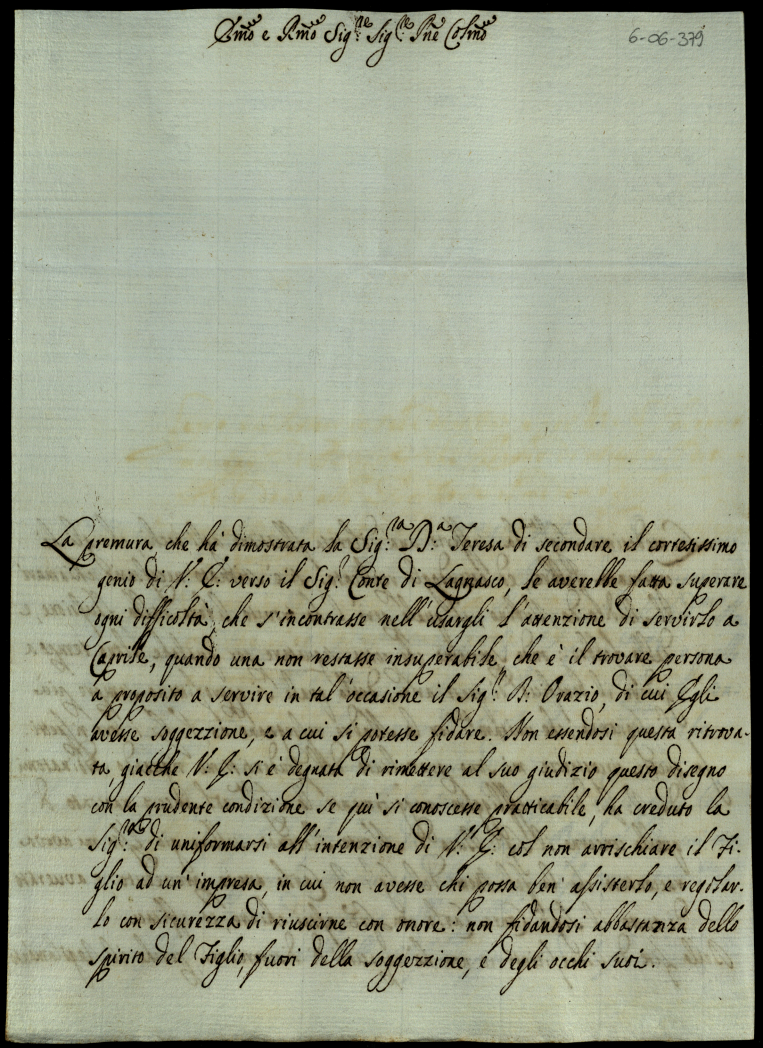 Illmo e Rmo Sigre: Sigre: Pne Colmo
6-06-379
La premura, che hà dimostrata la Sigra: Da: Teresa di secondare il cortesissimo
genio di V: E: verso il Sigr: Conte di Lagnasco, le averebbe fatta superare
ogni difficoltà, che s'incontrasse nell'usargli l'attenzione di servirlo a
Caprile, quando una non restasse insuperabile, che è il trovare persona
a proposito a servire in tal'occasione il Sigr: D: Orazio, di cui Egli
avesse soggezzione, e a cui si potesse fidare. Non essendosi questa ritrova-
ta, giacchè V: E: si è degnata di rimettere al suo giudizio questo disegno
con la prudente condizione se quì si conoscesse practicabile, ha creduto la
Sigra: di uniformarsi all'intenzione di V: E: col non arrischiare il Fi-
glio ad un'impresa, in cui non avesse chi possa ben'assisterlo, e regolar-
lo con sicurezza di riuscirne con onore: non fidandosi abbastanza dello
spirito del Figlio, fuori della soggezzione, e degli occhi suoi.